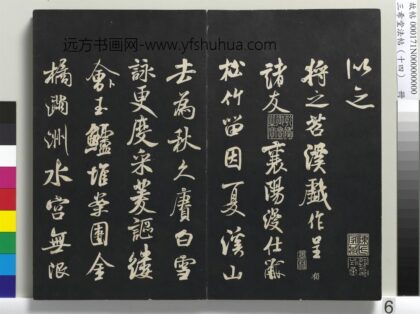 远方书画网-www.yfshuhua.com
故帖 000171N000000000
三希堂法帖（十四） 册
以之
將之苕溪戲作呈
諸友 襄陽漫仕黻
松竹留因夏溪山
去為秋久賡白雪
詠更度采菱謳縷
會玉鱸堆案團金
橘滿洲水宮無限
6